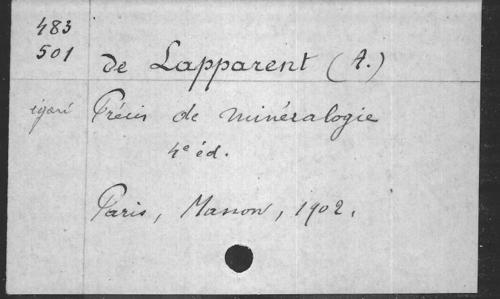 483
501
de Lapparent (A.)
égaré
Précis de minéralogie
4e éd.
Paris, Masson, 1902.